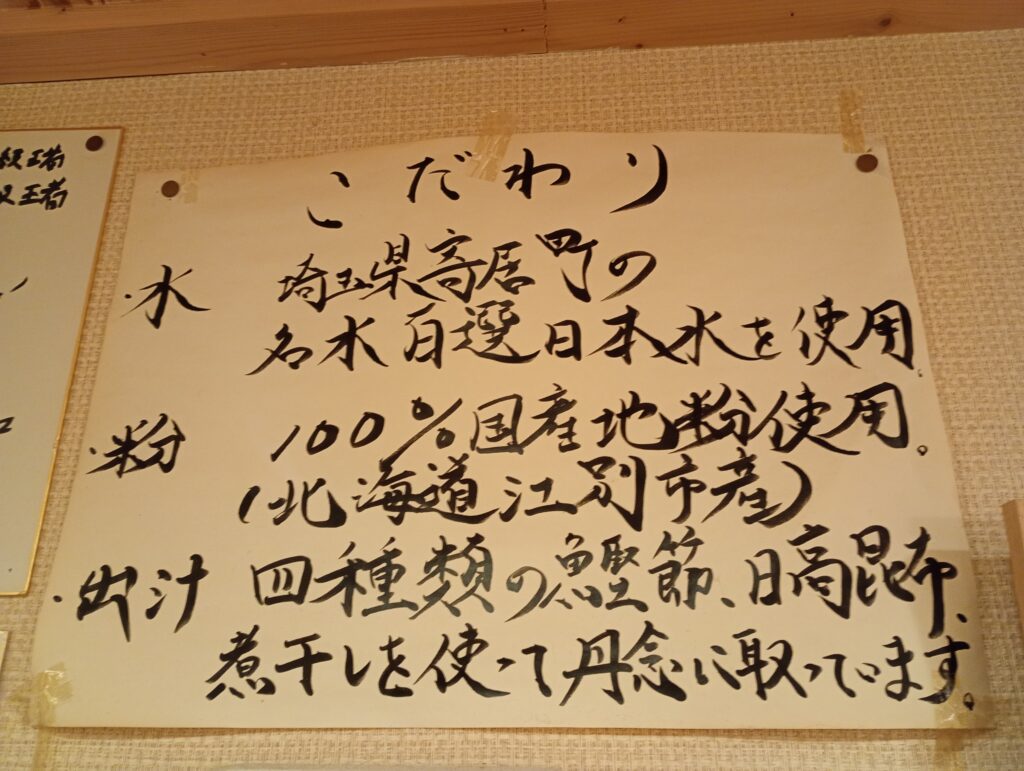 こだわり
・水 埼玉県寄居町の
名水百選日本水を使用。
・粉 100%国産地粉使用。
(北海道江別市産)
・出汁 四種類の鰹節、日高昆布、
煮干しを使って丹念に取っています。